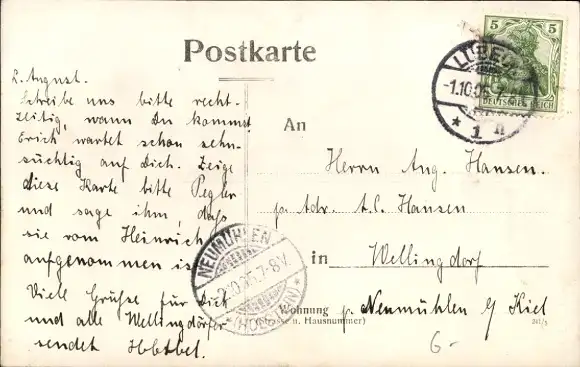 Postkarte
L. August.
Schreibe uns bitte recht-
zeitig, wann Du kommst
Erich wartet schon sehn-
süchtig auf Dich. Zeige
diese Karte bitte Pegler
und sage ihm, daß
sie vom Heinrich
aufgenommen ist
Viele Grüße für Dich
und alle Wellingdörfer
sendet
An
Herrn Aug. Hansen.
pr. Adr. A.C. Hansen
in Wellingdorf
Wohnung p. Neumühlen b/ Kiel
(Strasse u. Hausnummer)
6-
5 5
DEUTSCHES REICH
LÜBECK
-1.10.05.7-
* 1
NEUMÜHLEN
2.10.05.7-8V.
*(HOLSTEIN)*